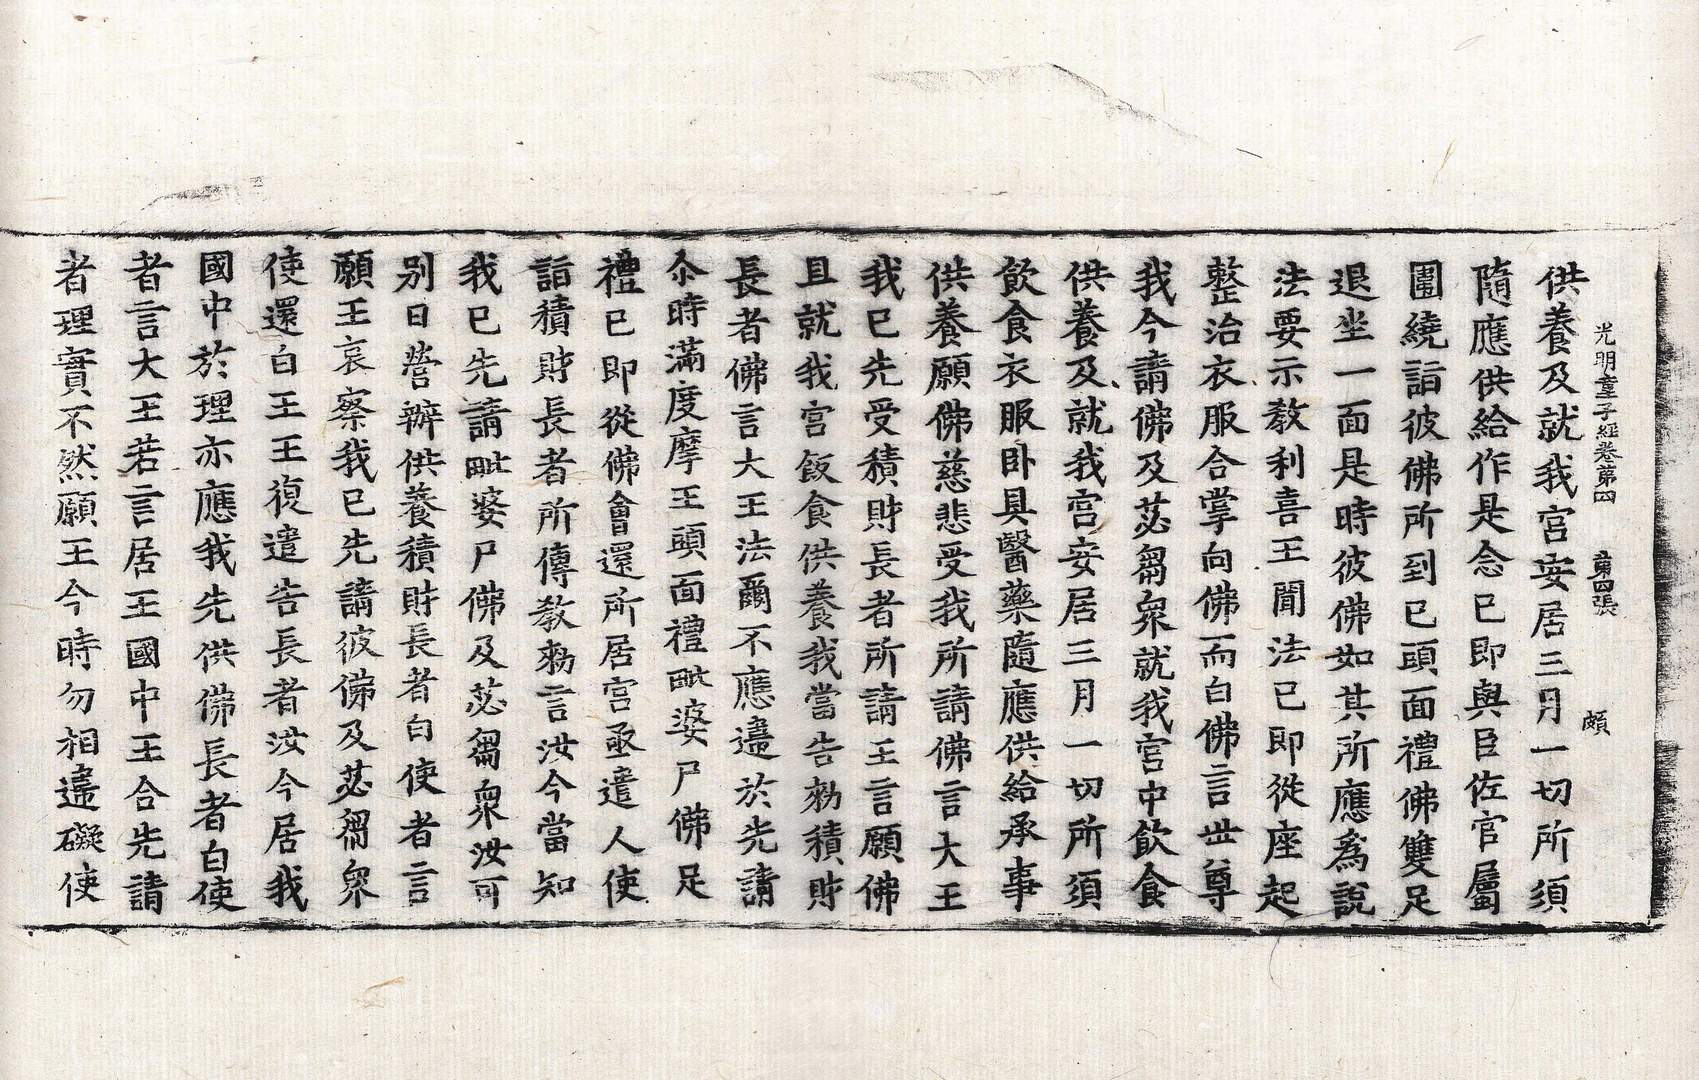 光明童子經卷第四 第四張 頗
供養及就我宮安居三月一切所須
隨應供給作是念已即與臣佐官屬
圍繞詣彼佛所到已頭面禮佛雙足
退坐一面是時彼佛如其所應為說
法要示教利喜王聞法已即從座起
整治衣服合掌向佛而白佛言世尊
我今請佛及苾芻衆就我宮中飲食
供養及就我宮安居三月一切所須
飲食衣服卧具醫藥隨應供給承事
供養願佛慈悲受我所請佛言大王
我已先受積財長者所請王言願佛
且就我宮飯食供養我當告勑積財
長者佛言大王法爾不應違於先請
尒時滿度摩王頭面禮毗婆尸佛足
禮已即從佛會還所居宮亟遣人使
詣積財長者所傳教勑言汝今當知
我已先請毗婆尸佛及苾芻衆汝可
别日營辦供養積財長者白使者言
願王哀察我已先請彼佛及苾芻衆
使還白王王復遣告長者汝今居我
國中於理亦應我先供佛長者白使
者言大王若言居王國中王合先請
者理實不然願王今時勿相違礙使